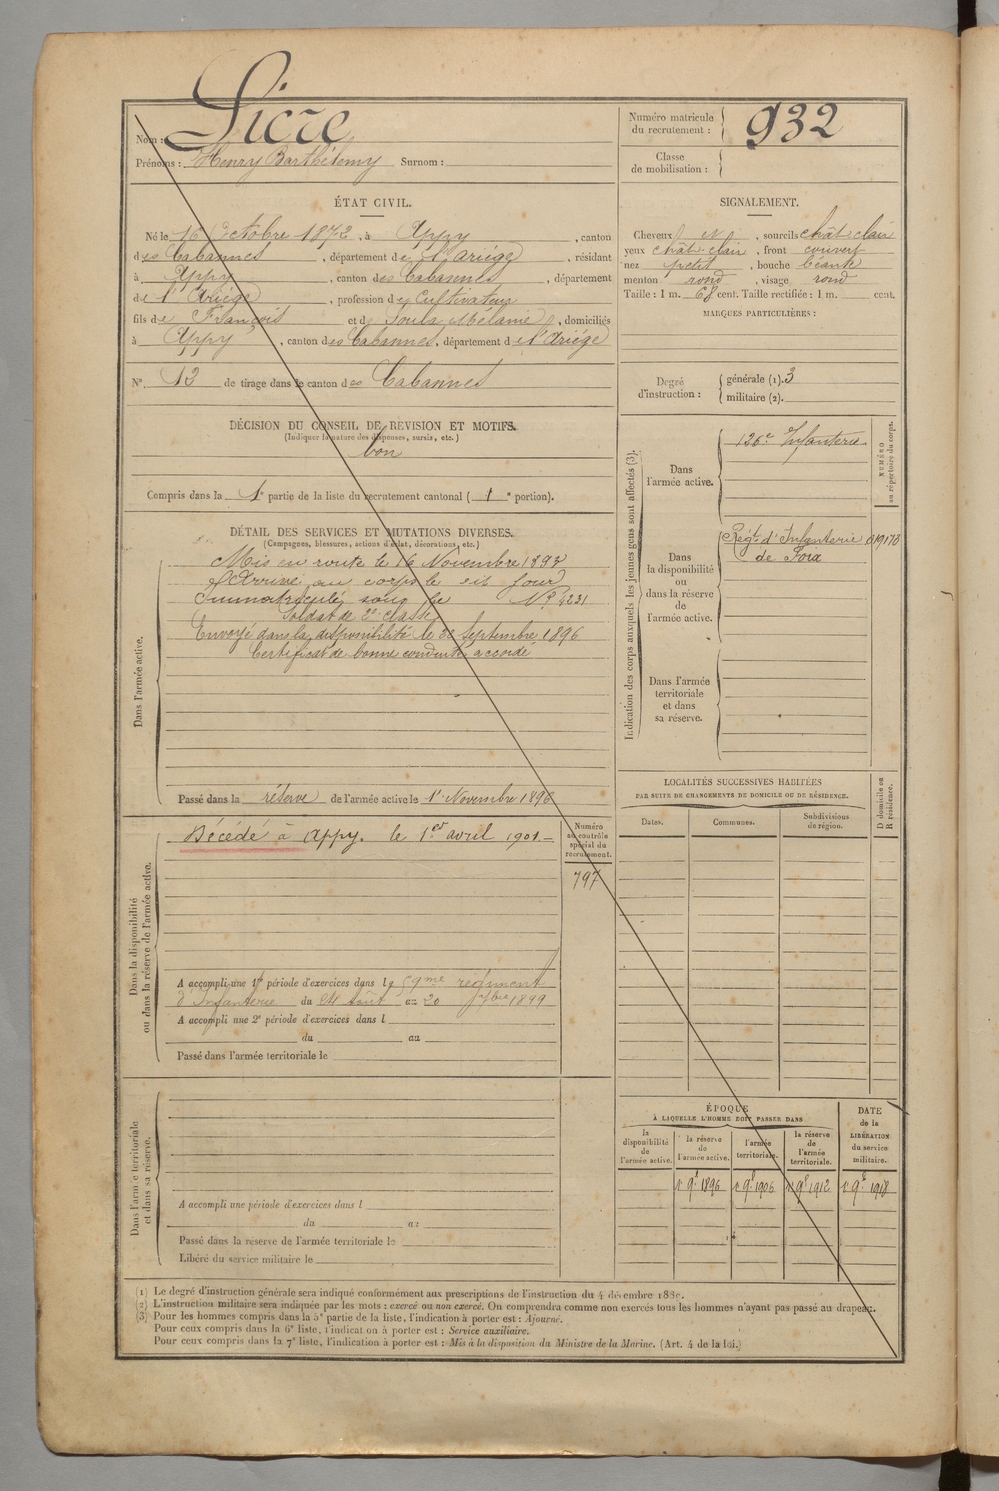 Nom : Sicre
Prénoms : Henry Barthélemy Surnom :
Numéro matricule
du recrutement : 932
Classe
de mobilisation :
ÉTAT CIVIL.
Né le 16 Octobre 1872, à Appy, canton
des Cabannes, département de l'Ariège, résidant
à Appy, canton des Cabannes, département
de l'Ariège, profession de Cultivateur
fils de François et de Soula Mélanie, domiciliés
à Appy, canton des Cabannes, département de l'Ariége
N° 12 de tirage dans le canton des Cabannes
SIGNALEMENT.
Cheveux N, sourcils chât clair
yeux chât-clair, front couvert
nez petit, bouche béante
menton rond, visage rond
Taille : 1 m. 68 cent. Taille rectifiée : 1 m. cent.
MARQUES PARTICULIÈRES :
Degré
d'instruction :
générale (1). 3
militaire (2).
DÉCISION DU CONSEIL DE RÉVISION ET MOTIFS.
(Indiquer la nature des dispenses, sursis, etc.)
bon
Compris dans la 1e partie de la liste du recrutement cantonal ( 1 e portion).
DÉTAIL DES SERVICES ET MUTATIONS DIVERSES.
(Campagnes, blessures, actions d'éclat, décorations, etc.)
Dans l'armée active.
Mis en route le 16 Novembre 1893
Arrivé au corps le dit jour
Immatriculé sous le N° 4231
Soldat de 2e classe
Envoyé dans la disponibilité le 22 Septembre 1896
Certificat de bonne conduite accordé
Passé dans la réserve de l'armée active le 1r Novembre 1896
Indication des corps auxquels les jeunes gens sont affectés (3).
Dans
l'armée active.
126e Infanterie
NUMÉRO
au répertoire du corps.
Dans
la disponibilité
ou
dans la réserve
de
l'armée active.
Régt d'Infanterie
de Foix
Dans l'armée
territoriale
et dans
sa réserve.
LOCALITÉS SUCCESSIVES HABITÉES
PAR SUITE DE CHANGEMENTS DE DOMICILE OU DE RÉSIDENCE.
Dates.
Communes.
Subdivisions
de région.
D domicile ou
R résidence.
Dans la disponibilité
ou dans la réserve de l'armée active.
Décédé à Appy. le 1er avril 1901.
Numéro
au contrôle
spécial du
recrutement.
797
A accompli une 1re période d'exercices dans le 59me régiment
d'Infanterie du 24 Août au 20 7bre 1899
A accompli une 2e période d'exercices dans l
du au
Passé dans l'armée territoriale le
Dans l'armée territoriale
et dans sa réserve.
A accompli une période d'exercices dans l
du au
Passé dans la réserve de l'armée territoriale le
Libéré du service militaire le
ÉPOQUE
À LAQUELLE L'HOMME DOIT PASSER DANS
la
disponibilité
de
l'armée active.
la réserve
de
l'armée active.
l'armée
territoriale.
la réserve
de
l'armée
territoriale.
DATE
de la
LIBÉRATION
du service
militaire.
1r 9e 1896 1r 9e 1906 1r 9e 1912 1r 9e 1918
(1) Le degré d'instruction générale sera indiqué conformément aux prescriptions de l'instruction du 4 décembre 1889.
(2) L'instruction militaire sera indiquée par les mots : exercé ou non exercé. On comprendra comme non exercés tous les hommes n'ayant pas passé au drapeau.
(3) Pour les hommes compris dans la 5e partie de la liste, l'indication à porter est : Ajourné.
Pour ceux compris dans la 6e liste, l'indication à porter est : Service auxiliaire.
Pour ceux compris dans la 7e liste, l'indication à porter est : Mis à la disposition du Ministre de la Marine. (Art. 4 de la loi.)